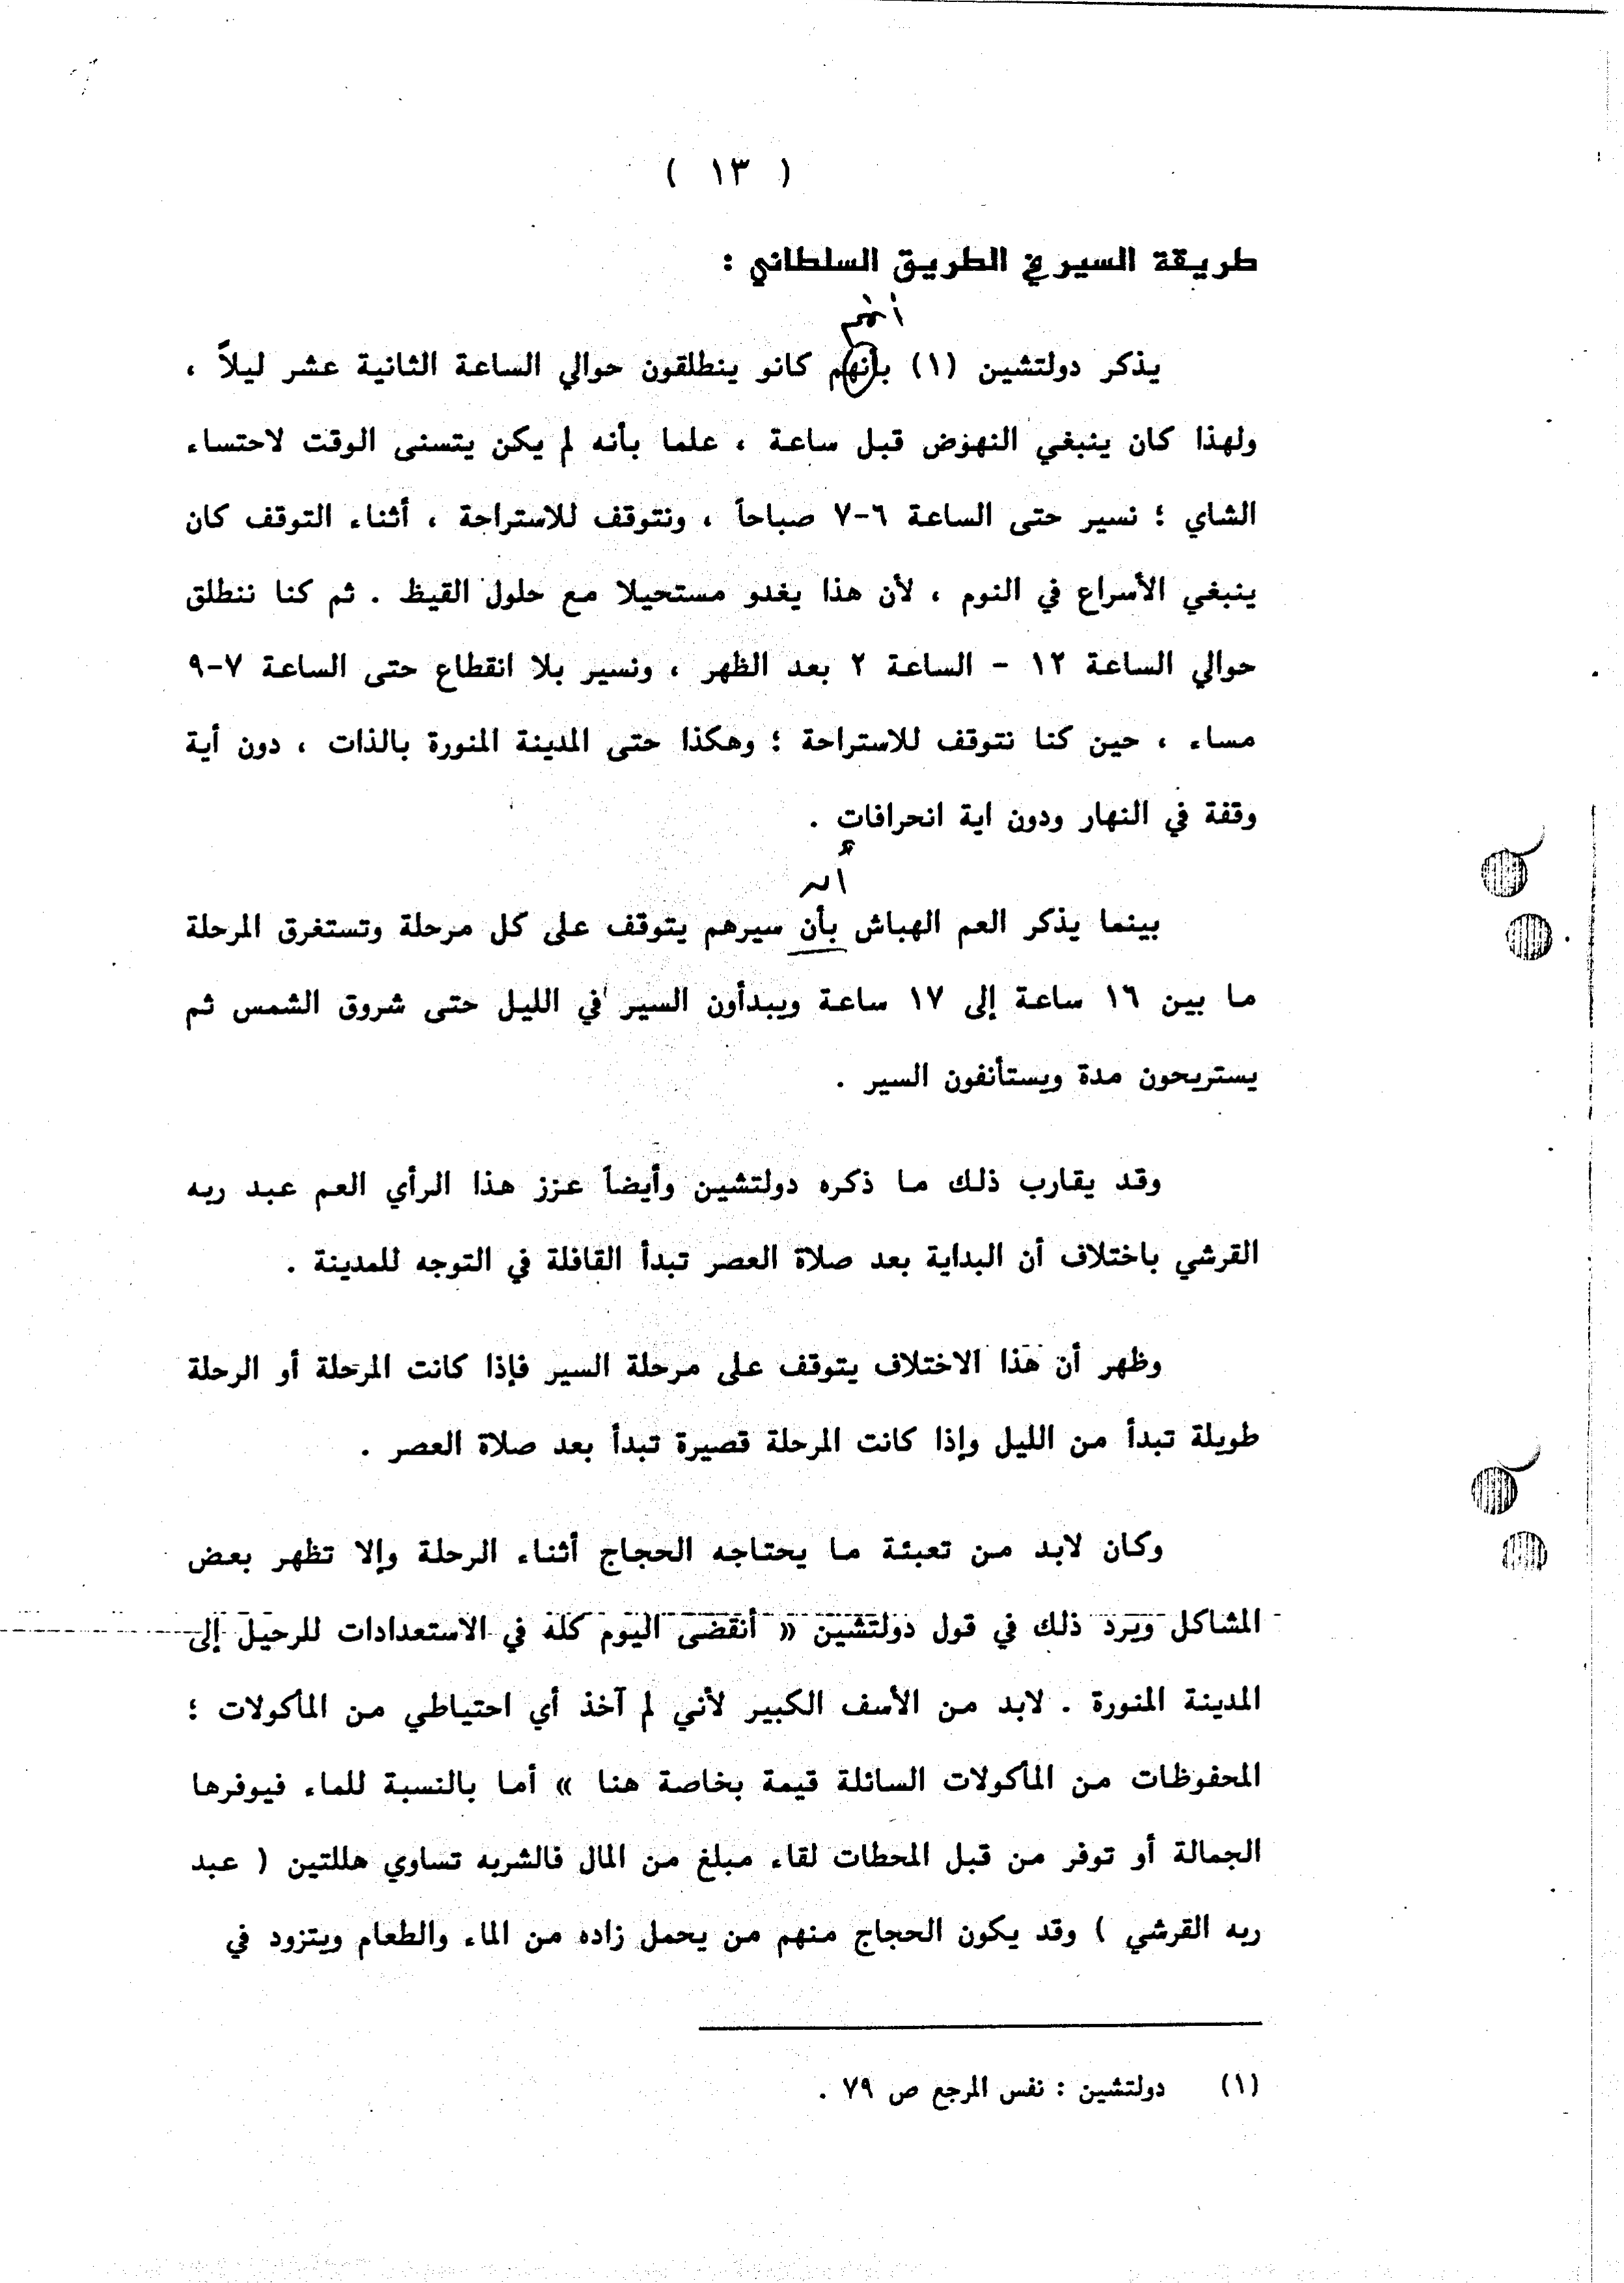 ( ١٣ )
طريقة السير في الطريق السلطاني :
أنهم
يذكر دولتشين (١) بأنهم كانو ينطلقون حوالي الساعة الثانية عشر ليلاً ،
ولهذا كان ينبغي النهوض قبل ساعة ، علما بأنه لم يكن يتسنى الوقت لاحتساء
الشاي ؛ نسير حتى الساعة ٦-٧ صباحاً ، ونتوقف للاستراحة ، أثناء التوقف كان
ينبغي الأسراع في النوم ، لأن هذا يغدو مستحيلا مع حلول القيظ . ثم كنا ننطلق
حوالي الساعة ١٢ - الساعة ٢ بعد الظهر ، ونسير بلا انقطاع حتى الساعة ٧-٩
مساء ، حين كنا نتوقف للاستراحة ؛ وهكذا حتى المدينة المنورة بالذات ، دون أية
وقفة في النهار ودون اية انحرافات .
أن
بينما يذكر العم الهباش بأن سيرهم يتوقف على كل مرحلة وتستغرق المرحلة
ما بين ١٦ ساعة إلى ١٧ ساعة ويبدأون السير في الليل حتى شروق الشمس ثم
يستريحون مدة ويستأنفون السير .
وقد يقارب ذلك ما ذكره دولتشين وأيضاً عزز هذا الرأي العم عبد ربه
القرشي باختلاف أن البداية بعد صلاة العصر تبدأ القافلة في التوجه للمدينة .
وظهر أن هذا الاختلاف يتوقف على مرحلة السير فإذا كانت المرحلة أو الرحلة
طويلة تبدأ من الليل وإذا كانت المرحلة قصيرة تبدأ بعد صلاة العصر .
وكان لابد من تعبئة ما يحتاجه الحجاج أثناء الرحلة وإلا تظهر بعض
المشاكل ويرد ذلك في قول دولتشين « أنقضى اليوم كله في الاستعدادات للرحيل إلى
المدينة المنورة . لابد من الأسف الكبير لأني لم آخذ أي احتياطي من المأكولات ؛
المحفوظات من المأكولات السائلة قيمة بخاصة هنا » أما بالنسبة للماء فيوفرها
الجمالة أو توفر من قبل المحطات لقاء مبلغ من المال فالشربه تساوي هللتين ( عبد
ربه القرشي ) وقد يكون الحجاج منهم من يحمل زاده من الماء والطعام ويتزود في
(١) دولتشين : نفس المرجع ص ٧٩ .